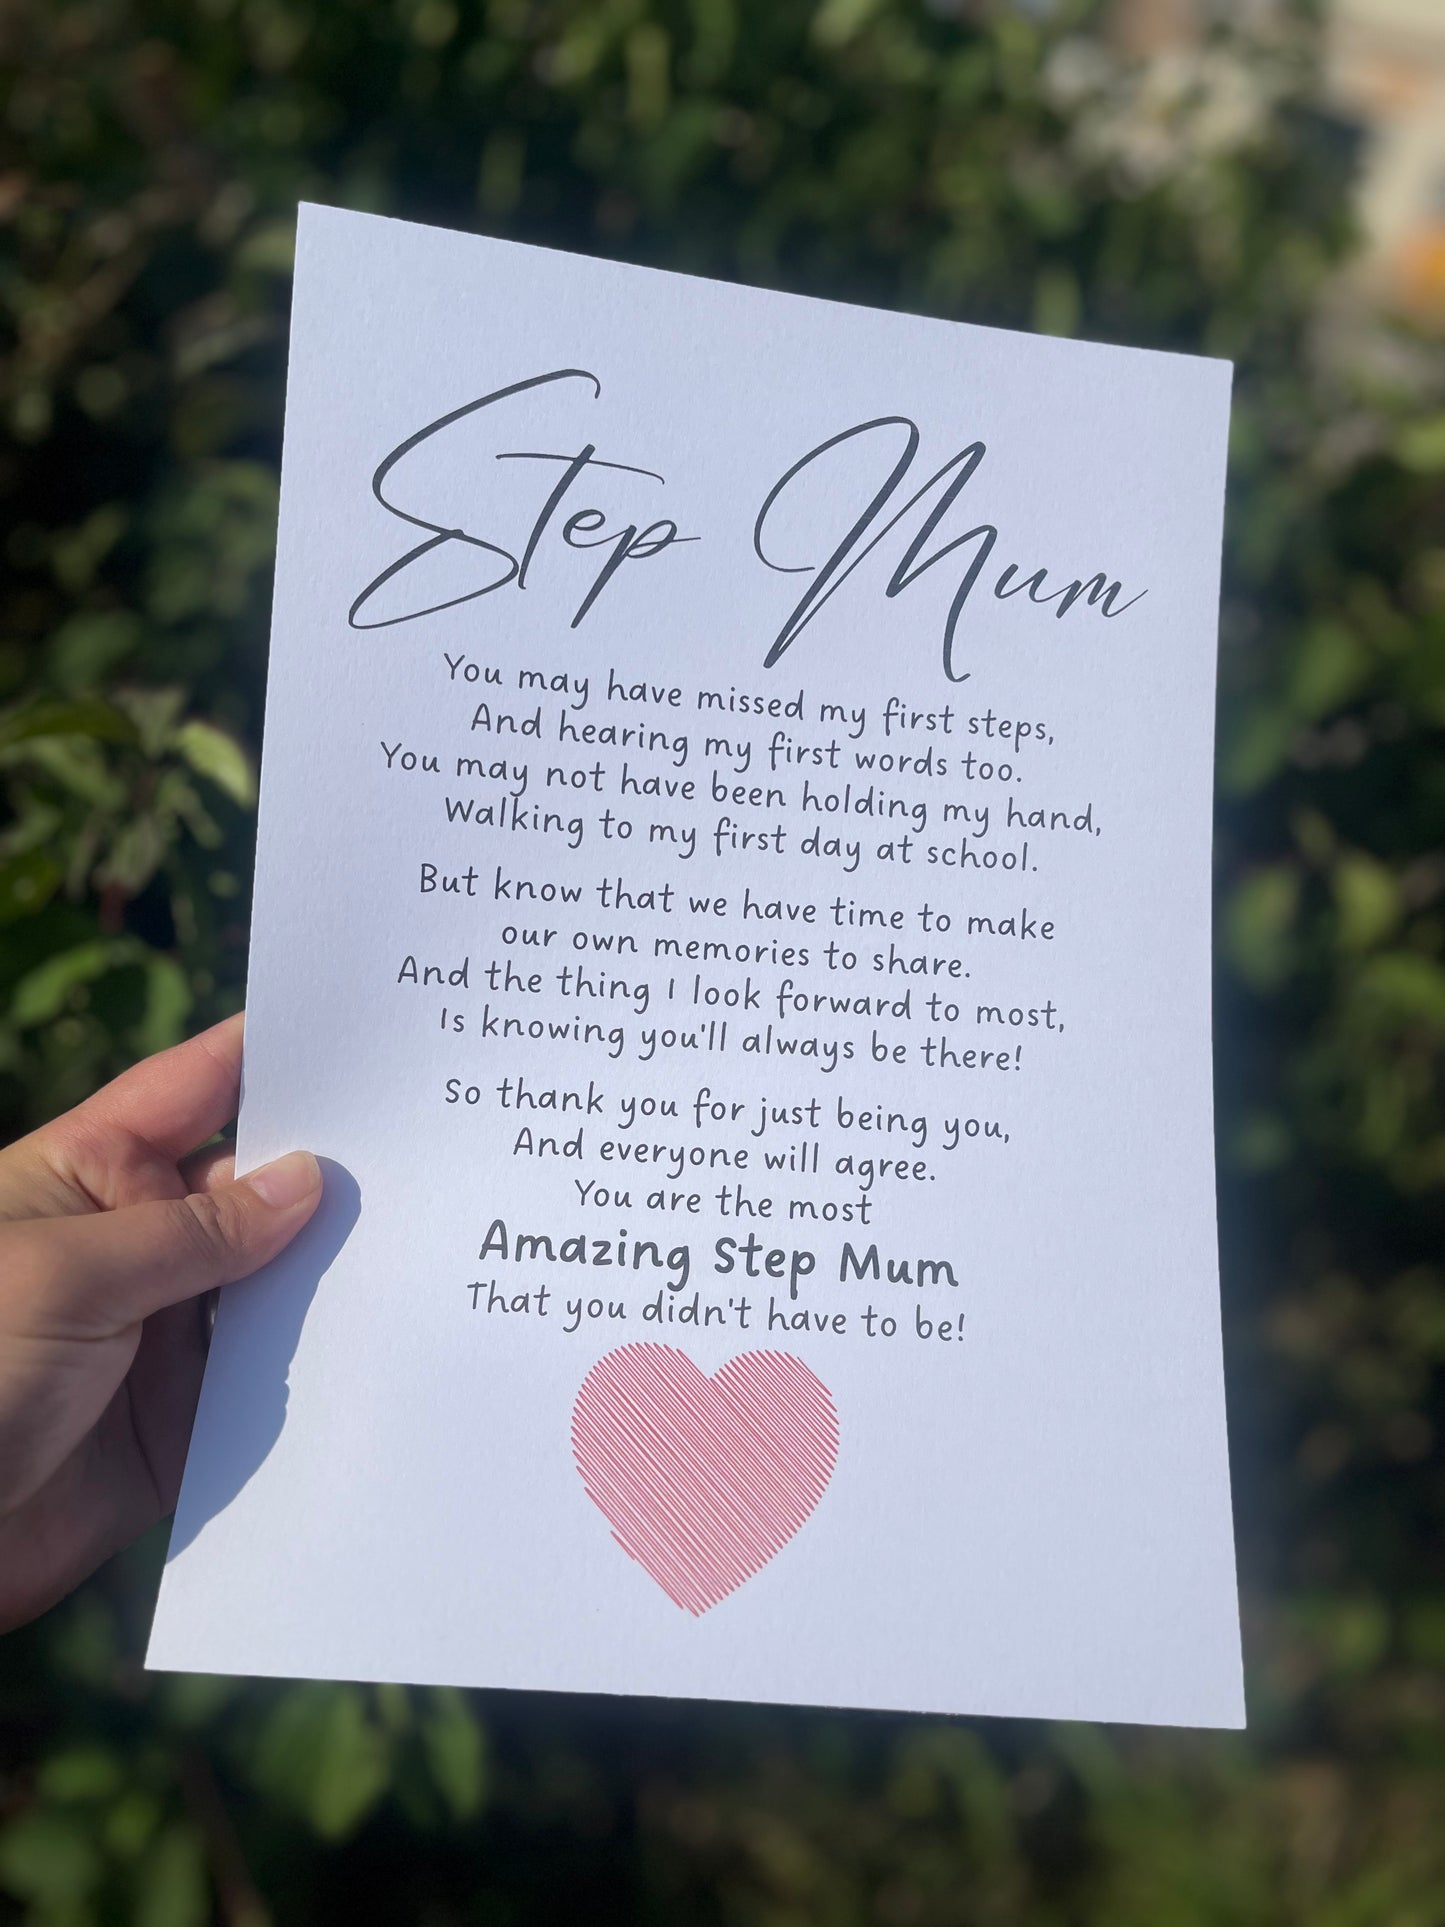 Step Mum
You may have missed my first steps,
And hearing my first words too.
You may not have been holding my hand,
Walking to my first day at school.
But know that we have time to make
our own memories to share.
And the thing I look forward to most,
Is knowing you'll always be there!
So thank you for just being you,
And everyone will agree.
You are the most
Amazing Step Mum
That you didn't have to be!